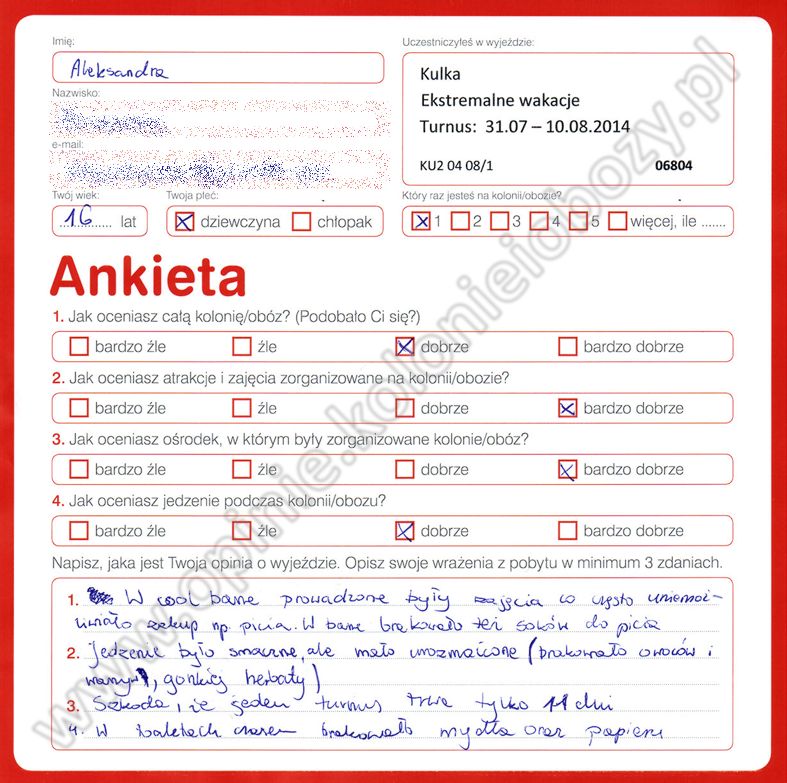 Imię:
Aleksandra
Nazwisko:
e-mail:
Twój wiek:
16 lat
Twoja płeć:
dziewczyna chłopak
Uczestniczyłeś w wyjeździe:
Kulka
Ekstremalne wakacje
Turnus: 31.07 – 10.08.2014
KU2 04 08/1 06804
Który raz jesteś na kolonii/obozie?
1 2 3 4 5 więcej, ile .......
Ankieta
1. Jak oceniasz całą kolonię/obóz? (Podobało Ci się?)
bardzo źle źle dobrze bardzo dobrze
2. Jak oceniasz atrakcje i zajęcia zorganizowane na kolonii/obozie?
bardzo źle źle dobrze bardzo dobrze
3. Jak oceniasz ośrodek, w którym były zorganizowane kolonie/obóz?
bardzo źle źle dobrze bardzo dobrze
4. Jak oceniasz jedzenie podczas kolonii/obozu?
bardzo źle źle dobrze bardzo dobrze
Napisz, jaka jest Twoja opinia o wyjeździe. Opisz swoje wrażenia z pobytu w minimum 3 zdaniach.
1. W cool barze prowadzone były zajęcia co często uniemoż-
liwiało zakup np. picia. W barze brakowało też soków do picia
2. Jedzenie było smaczne, ale mało urozmaicone (brakowało owoców i
warzyw, gorzkiej herbaty)
3. Szkoda, że jeden turnus trwa tylko 11 dni
4. W toaletach czasem brakowało mydła oraz papieru
www.opinie.kolonieiobozy.pl